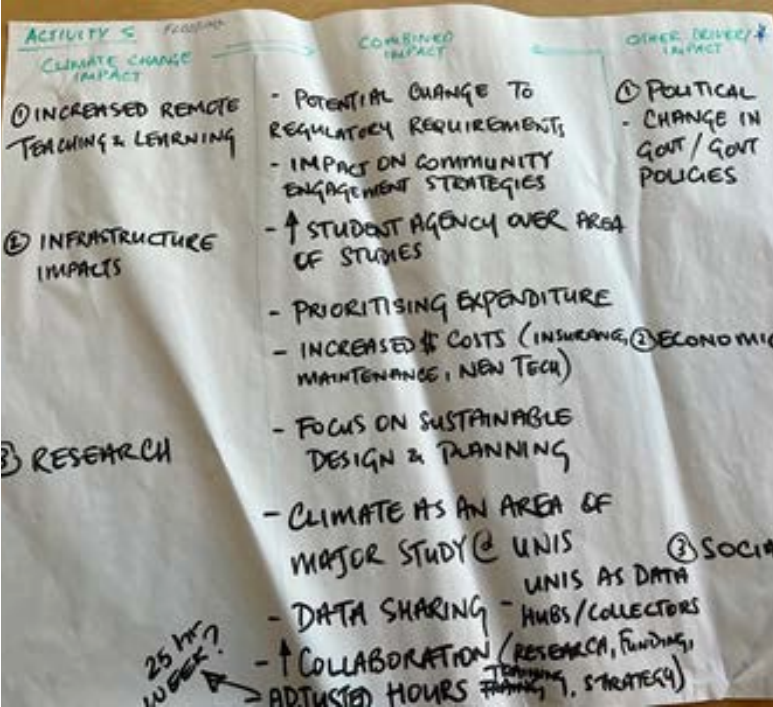 ACTIVITY 5 FLOODING
CLIMATE CHANGE
IMPACT
① INCREASED REMOTE
TEACHING & LEARNING
② INFRASTRUCTURE
IMPACTS
③ RESEARCH
COMBINED
IMPACT
- POTENTIAL CHANGE TO
REGULATORY REQUIREMENTS
- IMPACT ON COMMUNITY
ENGAGEMENT STRATEGIES
- ↑ STUDENT AGENCY OVER AREA
OF STUDIES
- PRIORITISING EXPENDITURE
- INCREASED $ COSTS (INSURANC,
MAINTENANCE, NEW TECH)
- FOCUS ON SUSTAINABLE
DESIGN & PLANNING
- CLIMATE AS AN AREA OF
MAJOR STUDY @ UNIS
- DATA SHARING - UNIS AS DATA
HUBS/COLLECTORS
- ↑ COLLABORATION (RESEARCH, FUNDING,
TRAINING, STRATEGY)
- ADJUSTED HOURS
25 hr
WEEK?
OTHER DRIVER/*
IMPACT
① POLITICAL
- CHANGE IN
GOVT / GOVT
POLICIES
② ECONOMIC
③ SOCIA